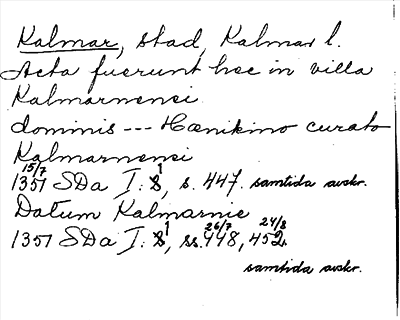 Kalmar, stad, Kalmar l.
Acta fuerunt hec in villa
Kalmarnensi
dominis --- Hænikino curato
Kalmarnensi
15/7
1351 SDa I: 1, s. 447. samtida avskr.
Datum Kalmarnie
26/7 24/8
1351 SDa I: 1, ss. 448, 452.
samtida avskr.